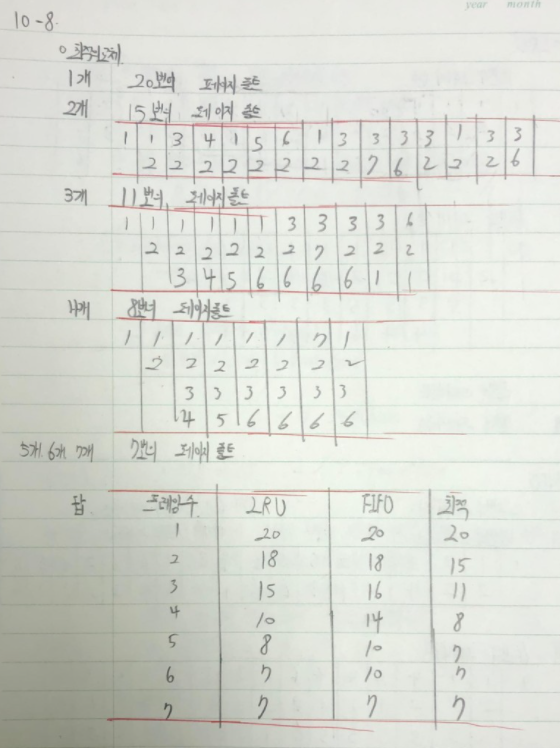 year month
10-8.
o 최적의 교체
1개 20번의 페이지 폴트
2개 15번의 페이지 폴트
1 1 3 4 1 5 6 1 3 3 3 3 1 3 3
2 2 2 2 2 2 2 2 7 6 2 2 2 6
3개 11번의 페이지 폴트
1 1 1 1 1 1 3 3 3 3 6
2 2 2 2 2 2 7 2 2 2
3 4 5 6 6 6 6 1 1
4개 8번의 페이지폴트
1 1 1 1 1 1 7 1
2 2 2 2 2 2 2
3 3 3 3 3 3
4 5 6 6 6 6
5개 6개 7개 7번의 페이지 폴트
답 프레임수 LRU FIFO 최적
1 20 20 20
2 18 18 15
3 15 16 11
4 10 14 8
5 8 10 7
6 7 10 7
7 7 7 7